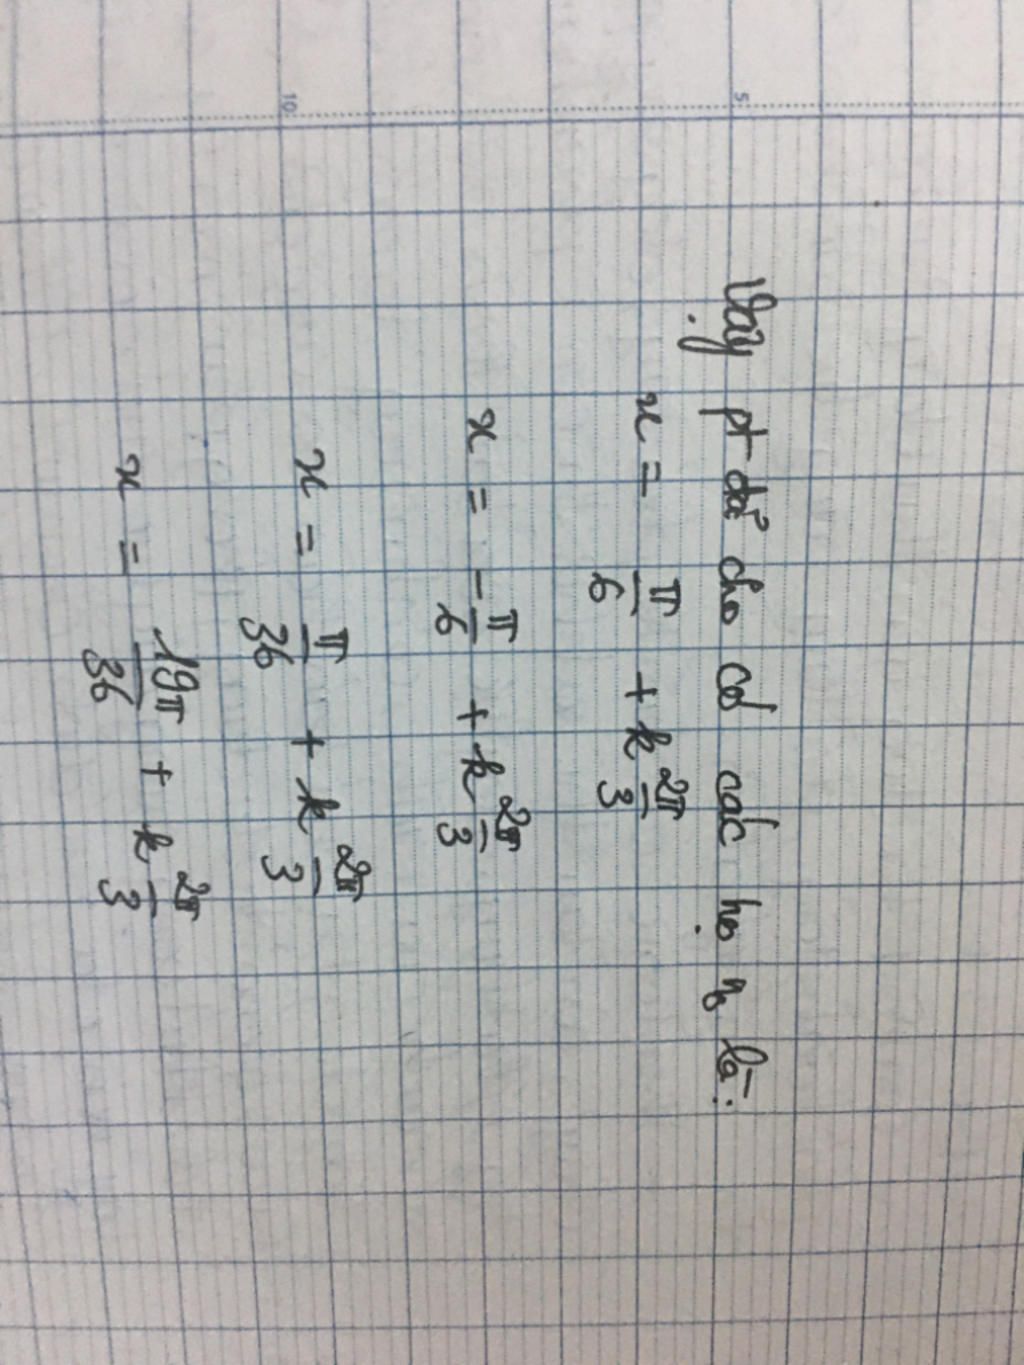 Vậy pt đã cho có các họ no là:
x = π/6 + k 2π/3
x = -π/6 + k 2π/3
x = π/36 + k 2π/3
x = 19π/36 + k 2π/3
5
10